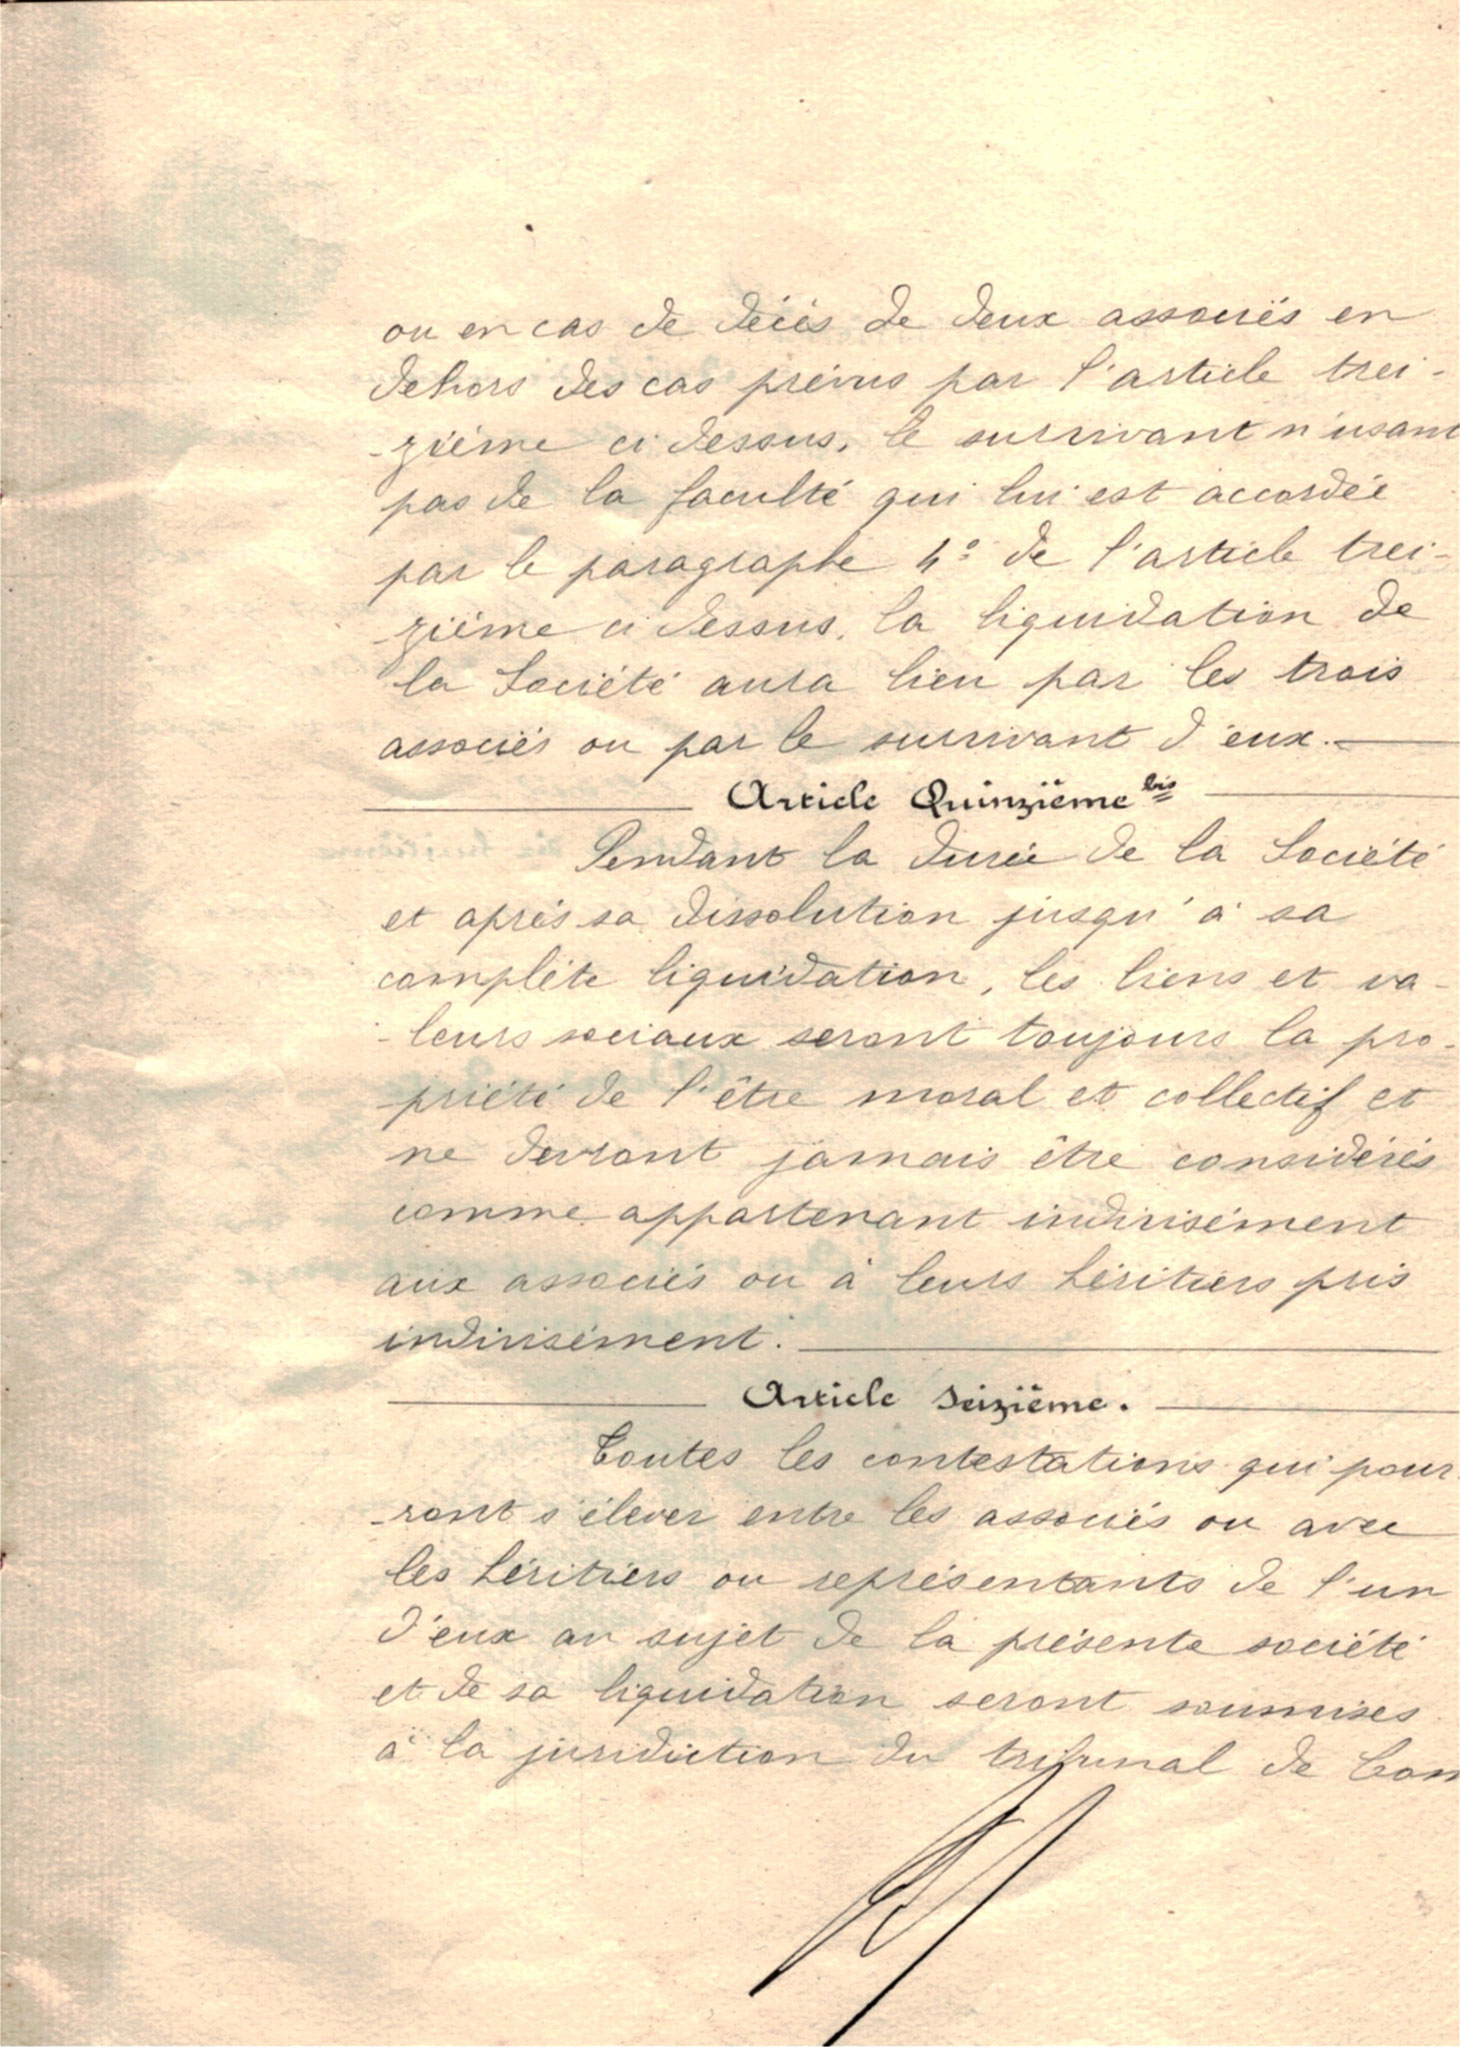 ou en cas de décès de deux associés en
dehors des cas prévus par l'article trei-
-zième ci dessus, le survivant n'usant
pas de la faculté qui lui est accordée
par le paragraphe 4° de l'article trei-
zième ci dessus, la liquidation de
la Société aura lieu par les trois
associés ou par le survivant d'eux.
Article Quinzième bis
Pendant la durée de la Société
et après sa dissolution jusqu'à sa
complète liquidation, les biens et va-
-leurs sociaux seront toujours la pro-
priété de l'être moral et collectif et
ne devront jamais être considérés
comme appartenant indivisément
aux associés ou à leurs héritiers pris
indivisément.
Article Seizième.
Toutes les contestations qui pour
-ront s'élever entre les associés ou avec
les héritiers ou représentants de l'un
d'eux au sujet de la présente société
et de sa liquidation seront soumises
à la juridiction du tribunal de Com